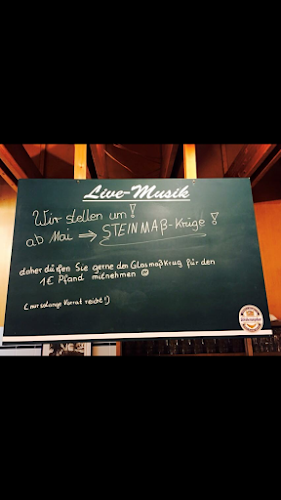 Live-Musik
Wir stellen um!
ab Mai ⇒ STEINMAß-Krüge!
daher dürfen Sie gerne den Glasmaßkrug für den
1€ Pfand mitnehmen ☺
(nur solange Vorrat reicht!)